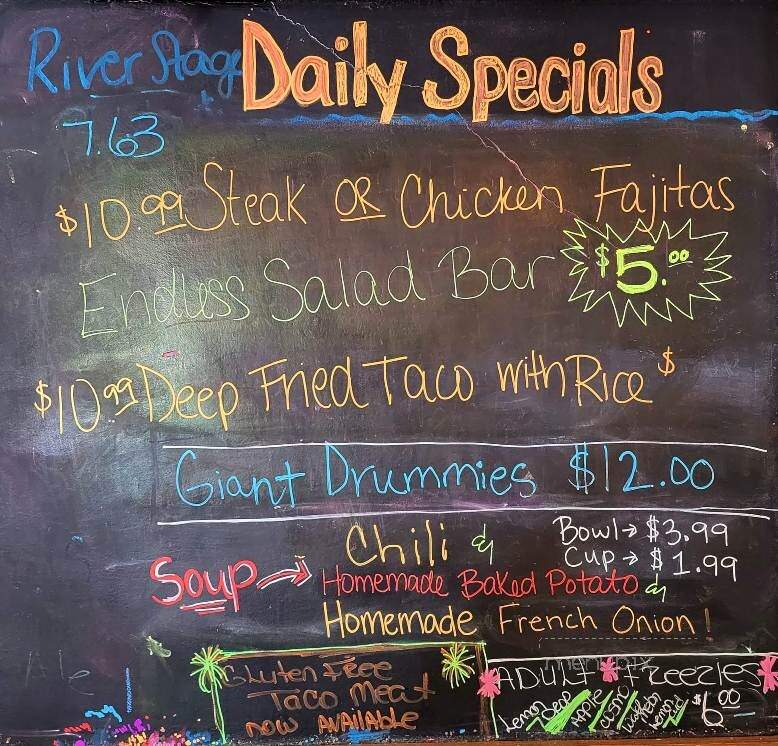 River Stage
7.63
Daily Specials
$10.99 Steak OR Chicken Fajitas
Endless Salad Bar $5.00
$10.99 Deep Fried Taco with Rice $
Giant Drummies $12.00
Soup → Chili &
Homemade Baked Potato &
Homemade French Onion!
Bowl → $3.99
Cup → $1.99
Gluten Free
Taco Meat
now AVAilABle
ADULT Freezies
Lemon Drop
Apple
Cosmo
$6.00
Ale